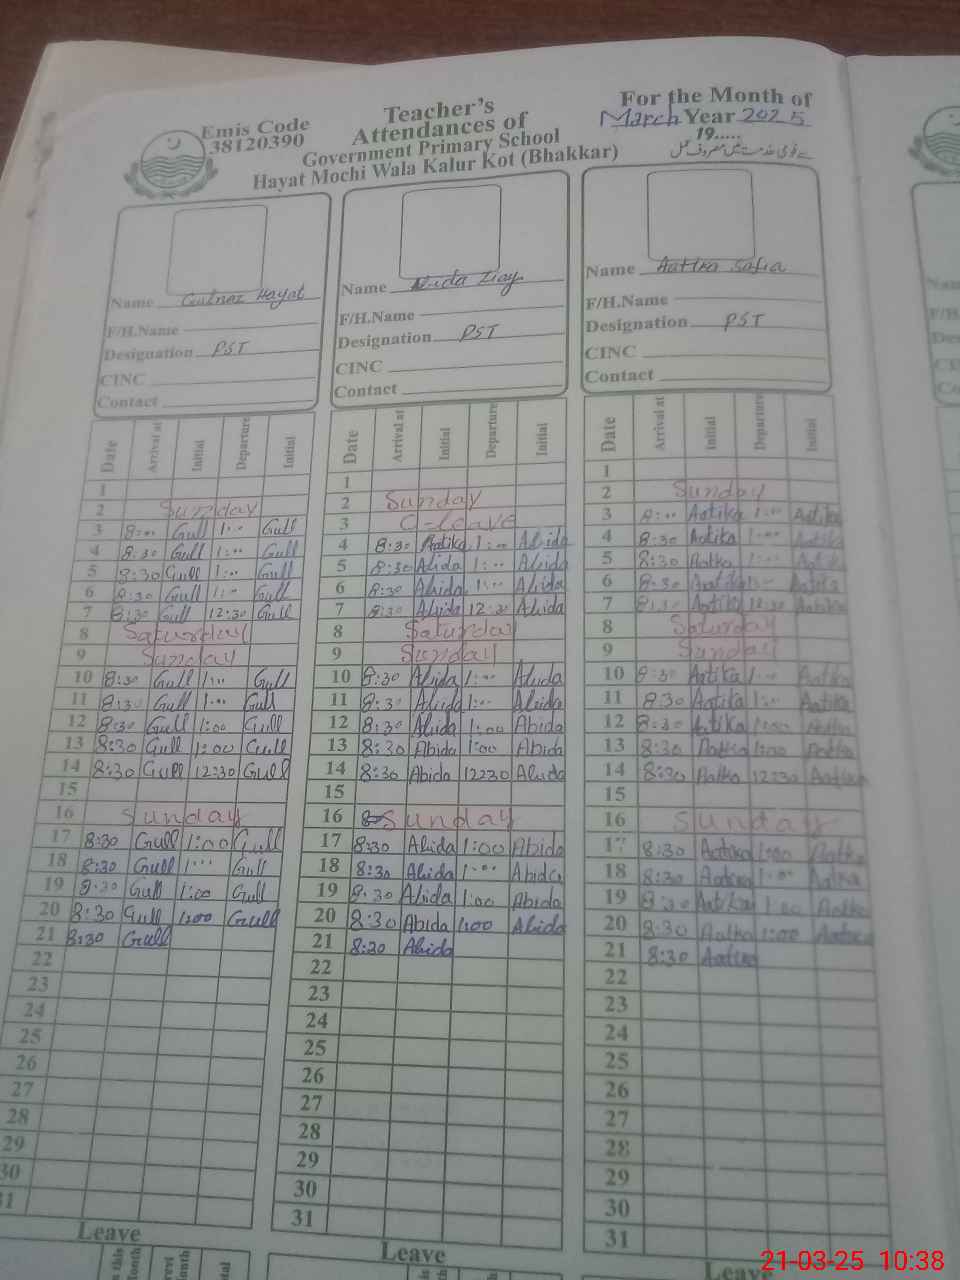 Emis Code
38120390
Teacher's
Attendances of
Government Primary School
Hayat Mochi Wala Kalur Kot (Bhakkar)
For the Month of
March Year 2025
19.....
Name Gulnaz Hayat
F/H.Name
Designation PST
CINC
Contact
Name
F/H.Name
Designation PST
CINC
Contact
Name Aatika Safia
F/H.Name
Designation PST
CINC
Contact
Date Arrival at Initial Departure Initial
1
2 Sunday
3 8:00 Gull 1:00 Gull
4 8:30 Gull 1:00 Gull
5 8:30 Gull 1:00 Gull
6 8:30 Gull 1:00 Gull
7 8:30 Gull 12:30 Gull
8 Saturday
9 Sunday
10 8:30 Gull 1:00 Gull
11 8:30 Gull 1:00 Gull
12 8:30 Gull 1:00 Gull
13 8:30 Gull 1:00 Gull
14 8:30 Gull 12:30 Gull
15
16 Sunday
17 8:30 Gull 1:00 Gull
18 8:30 Gull 1:00 Gull
19 8:30 Gull 1:00 Gull
20 8:30 Gull 1:00 Gull
21 8:30 Gull
22
23
24
25
26
27
28
29
30
31
Leave
Date Arrival at Initial Departure Initial
1
2 Sunday
3 C-leave
4 8:30 Aatika 1:00 Abida
5 8:30 Abida 1:00 Abida
6 8:30 Abida 1:00 Abida
7 8:30 Abida 12:30 Abida
8 Saturday
9 Sunday
10 8:30 Abida 1:00 Abida
11 8:30 Abida 1:00 Abida
12 8:30 Abida 1:00 Abida
13 8:30 Abida 1:00 Abida
14 8:30 Abida 12230 Abida
15
16 Sunday
17 8:30 Abida 1:00 Abida
18 8:30 Abida 1:00 Abida
19 8:30 Abida 1:00 Abida
20 8:30 Abida 1:00 Abida
21 8:30 Abida
22
23
24
25
26
27
28
29
30
31
Leave
Date Arrival at Initial Departure Initial
1
2 Sunday
3 8:00 Aatika 1:00 Aatika
4 8:30 Aatika 1:00 Aatika
5 8:30 Aatka 1:00 Aatika
6 8:30 1:00 Aatika
7 8:30 Aatika 12:30 Aatika
8 Saturday
9 Sunday
10 8:30 Aatika 1:00 Aatika
11 8:30 Aatika 1:00 Aatika
12 8:30 Aatika 1:00 Aatka
13 8:30 Aatka 1:00 Aatka
14 8:30 Aatka 12230 Aatika
15
16 Sunday
17 8:30 Aatika 1:00 Aatka
18 8:30 Aatika 1:00 Aatka
19 8:30 Aatika 1:00 Aatka
20 8:30 Aatka 1:00 Aatika
21 8:30 Aatika
22
23
24
25
26
27
28
29
30
31
Leave
21-03-25 10:38